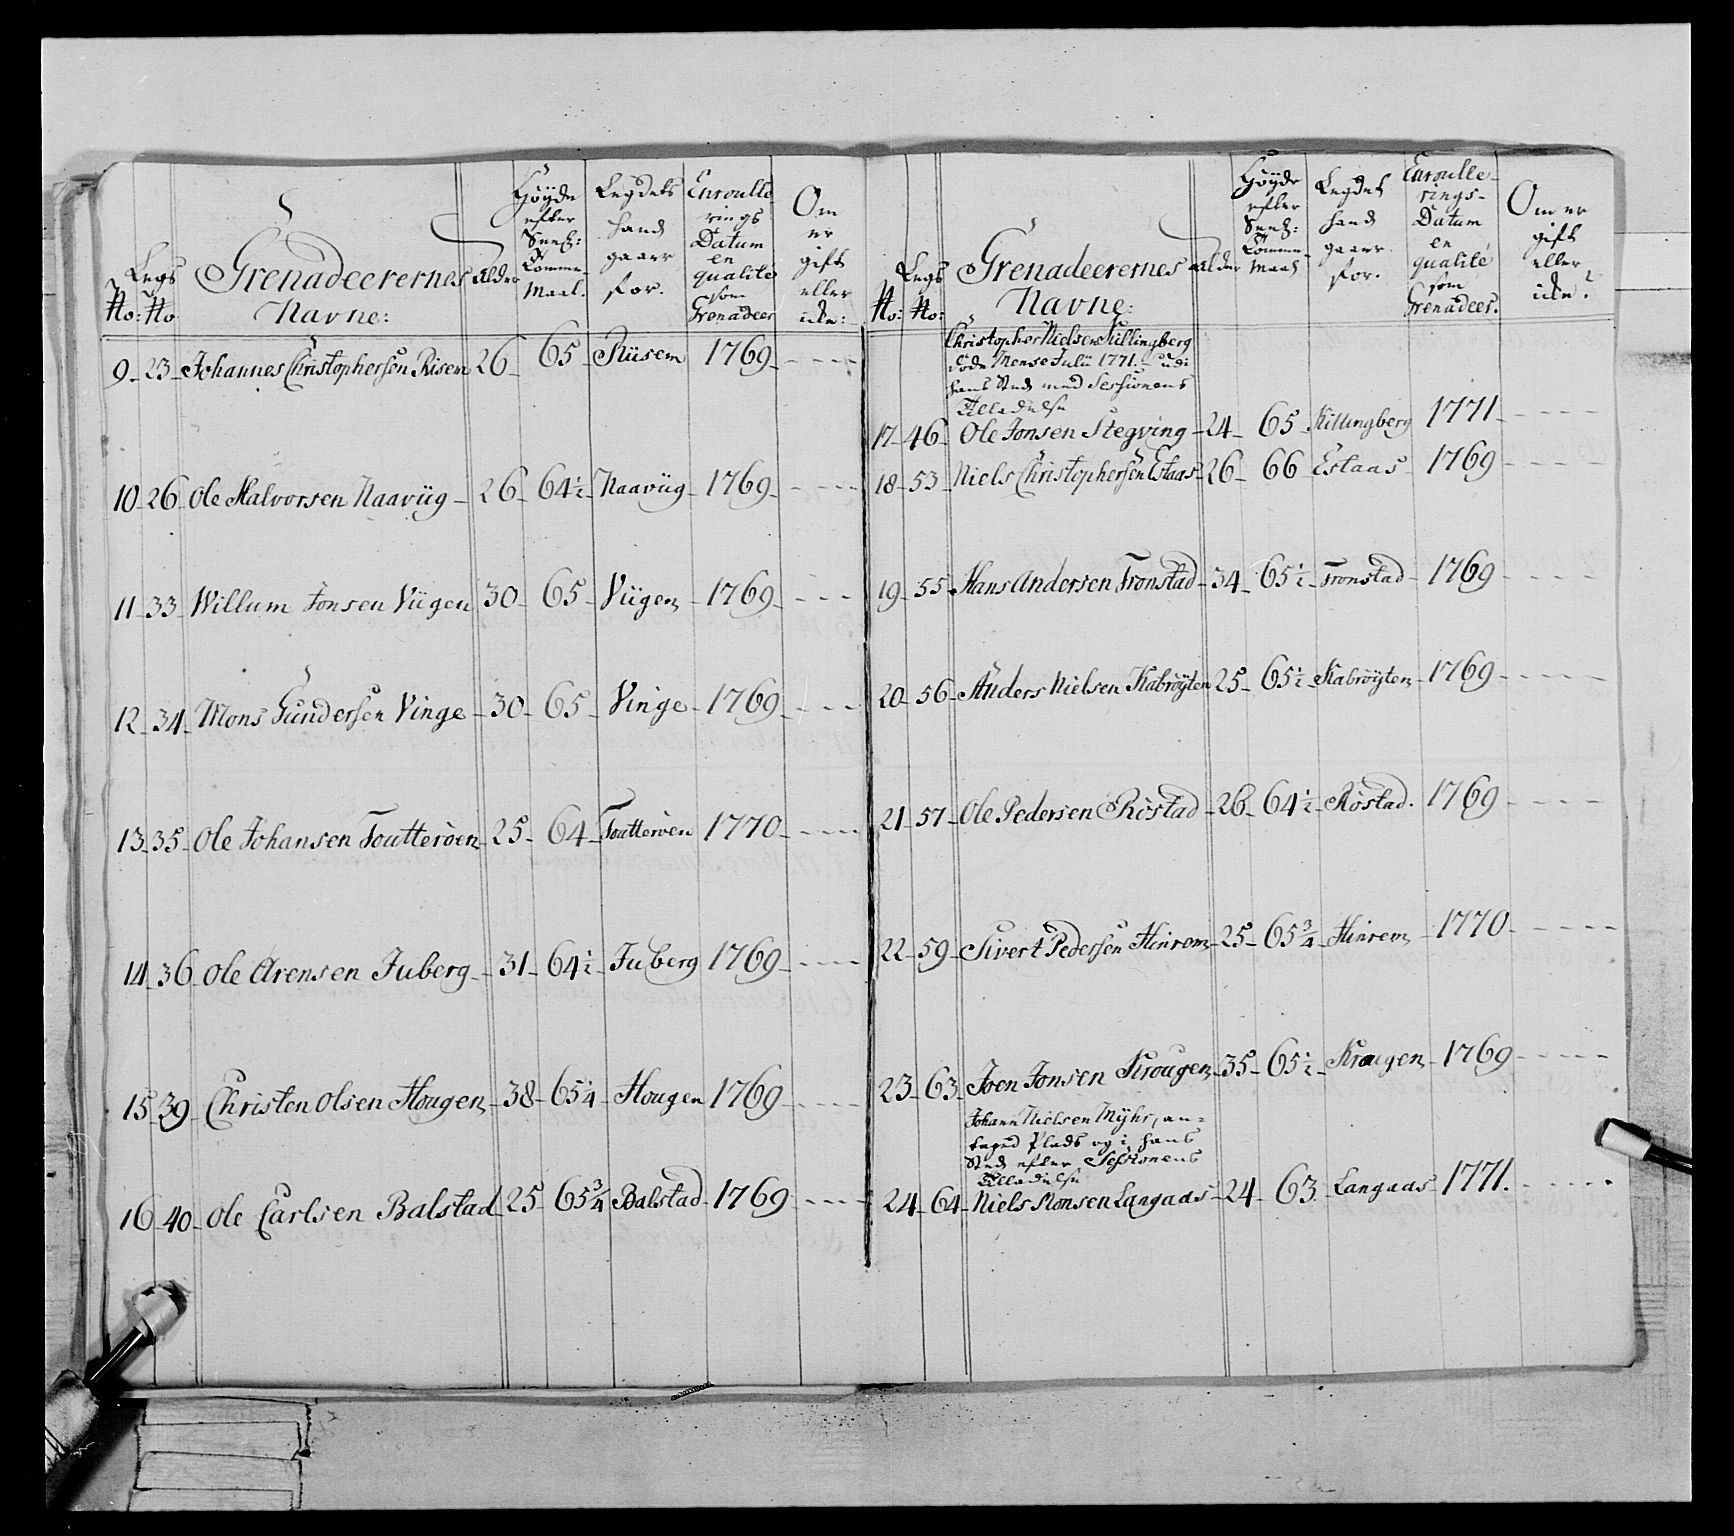 No: Legs No: Grenadeerernes Navne: Alder Høyde efter Seech: Comme- Maal. Legdets hand gaaer for. Enroulle rings Datum en qualité som Grenadeer Om er gift eller icke:
9 23 Johannes Christophersen Risem 26 65 Riisem 1769 - - - -
10 26 Ole Halvorsen Naaviig 26 64½ Naaviig 1769 - - - -
11 33 Willum Jonsen Viigen 30 65 Viigen 1769 - - - -
12 34 Mons Gundersen Vinge 30 65 Vinge 1769 - - - -
13 35 Ole Johansen Toutteröen 25 64 Toutteröen 1770 - - - -
14 36 Ole Arensen Juberg 31 64½ Juberg 1769 - - - -
15 39 Christen Olsen Hougen 38 65¼ Hougen 1769 - - - -
16 40 Ole Carlsen Balstad 25 65¾ Balstad 1769 - - - -
No: Legs No: Grenadeerernes Navne: Alder Høyde efter Comme- Maal Legdets hand gaaer for. Enroulle- rings- Datum en qualité som Grenadeer. Om er gift eller icke?
Christopher Nielsen Killingberg
döde Mense Julii 1771. udi
hans Sted med Sessionens
Tilladelse
17 46 Ole Jonsen Stegving 24 65 Killingberg 1771 - - - -
18 53 Niels Christophersen Estaas 26 66 Estaas 1769 - - - -
19 55 Hans Andersen Tronstad 34 65½ Tronstad 1769 - - - -
20 56 Anders Nielsen Kabröyten 25 65½ Kabröyten 1769 - - - -
21 57 Ole Pedersen Röstad 26 64½ Röstad. 1769 - - - -
22 59 Sivert Pedersen Hinrem 25 65¾ Hinrem 1770 - - - -
23 63 Joen Jonsen Krougen 35 65½ Krougen 1769 - - - -
Johann Nielsen Myhr, an-
taged Plads og i hans
Sted efter Sessionens
Tilladelse
24 64 Niels Monsen Langaas 24 63 Langaas 1771. - - - -